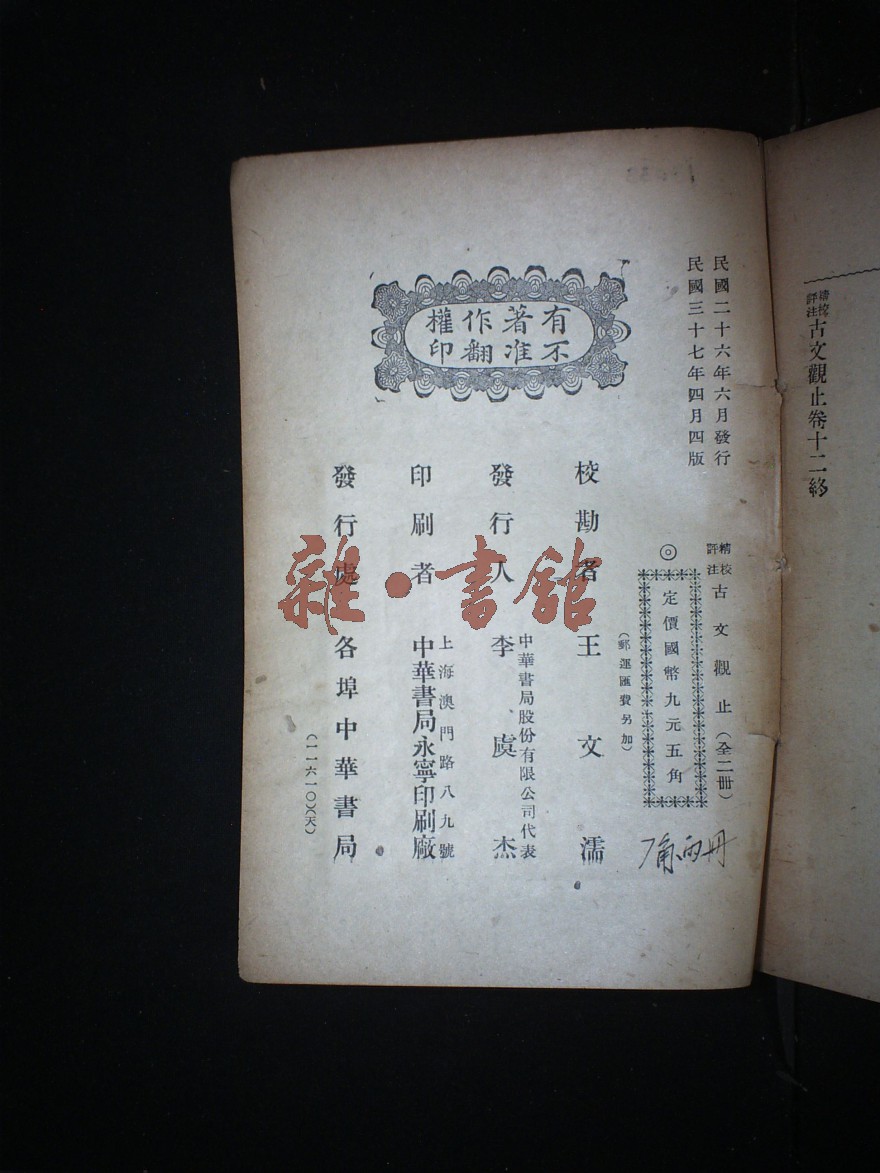 精校評注古文觀止卷十二終
民國二十六年六月發行
民國三十七年四月四版
有著作權
不准翻印
精校評注古文觀止（全二冊）
◎定價國幣九元五角
（郵運匯費另加）
校勘者 王文濡
發行人 中華書局股份有限公司代表
李虞杰
印刷者 上海澳門路八九號
中華書局永寧印刷廠
發行處 各埠中華書局
（一一六一〇）（天）
雜·書館